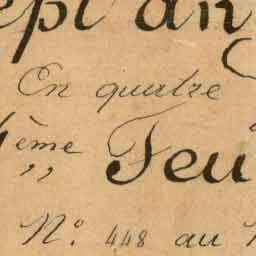 En quatre
ème Feu
" 
N.° 448 au